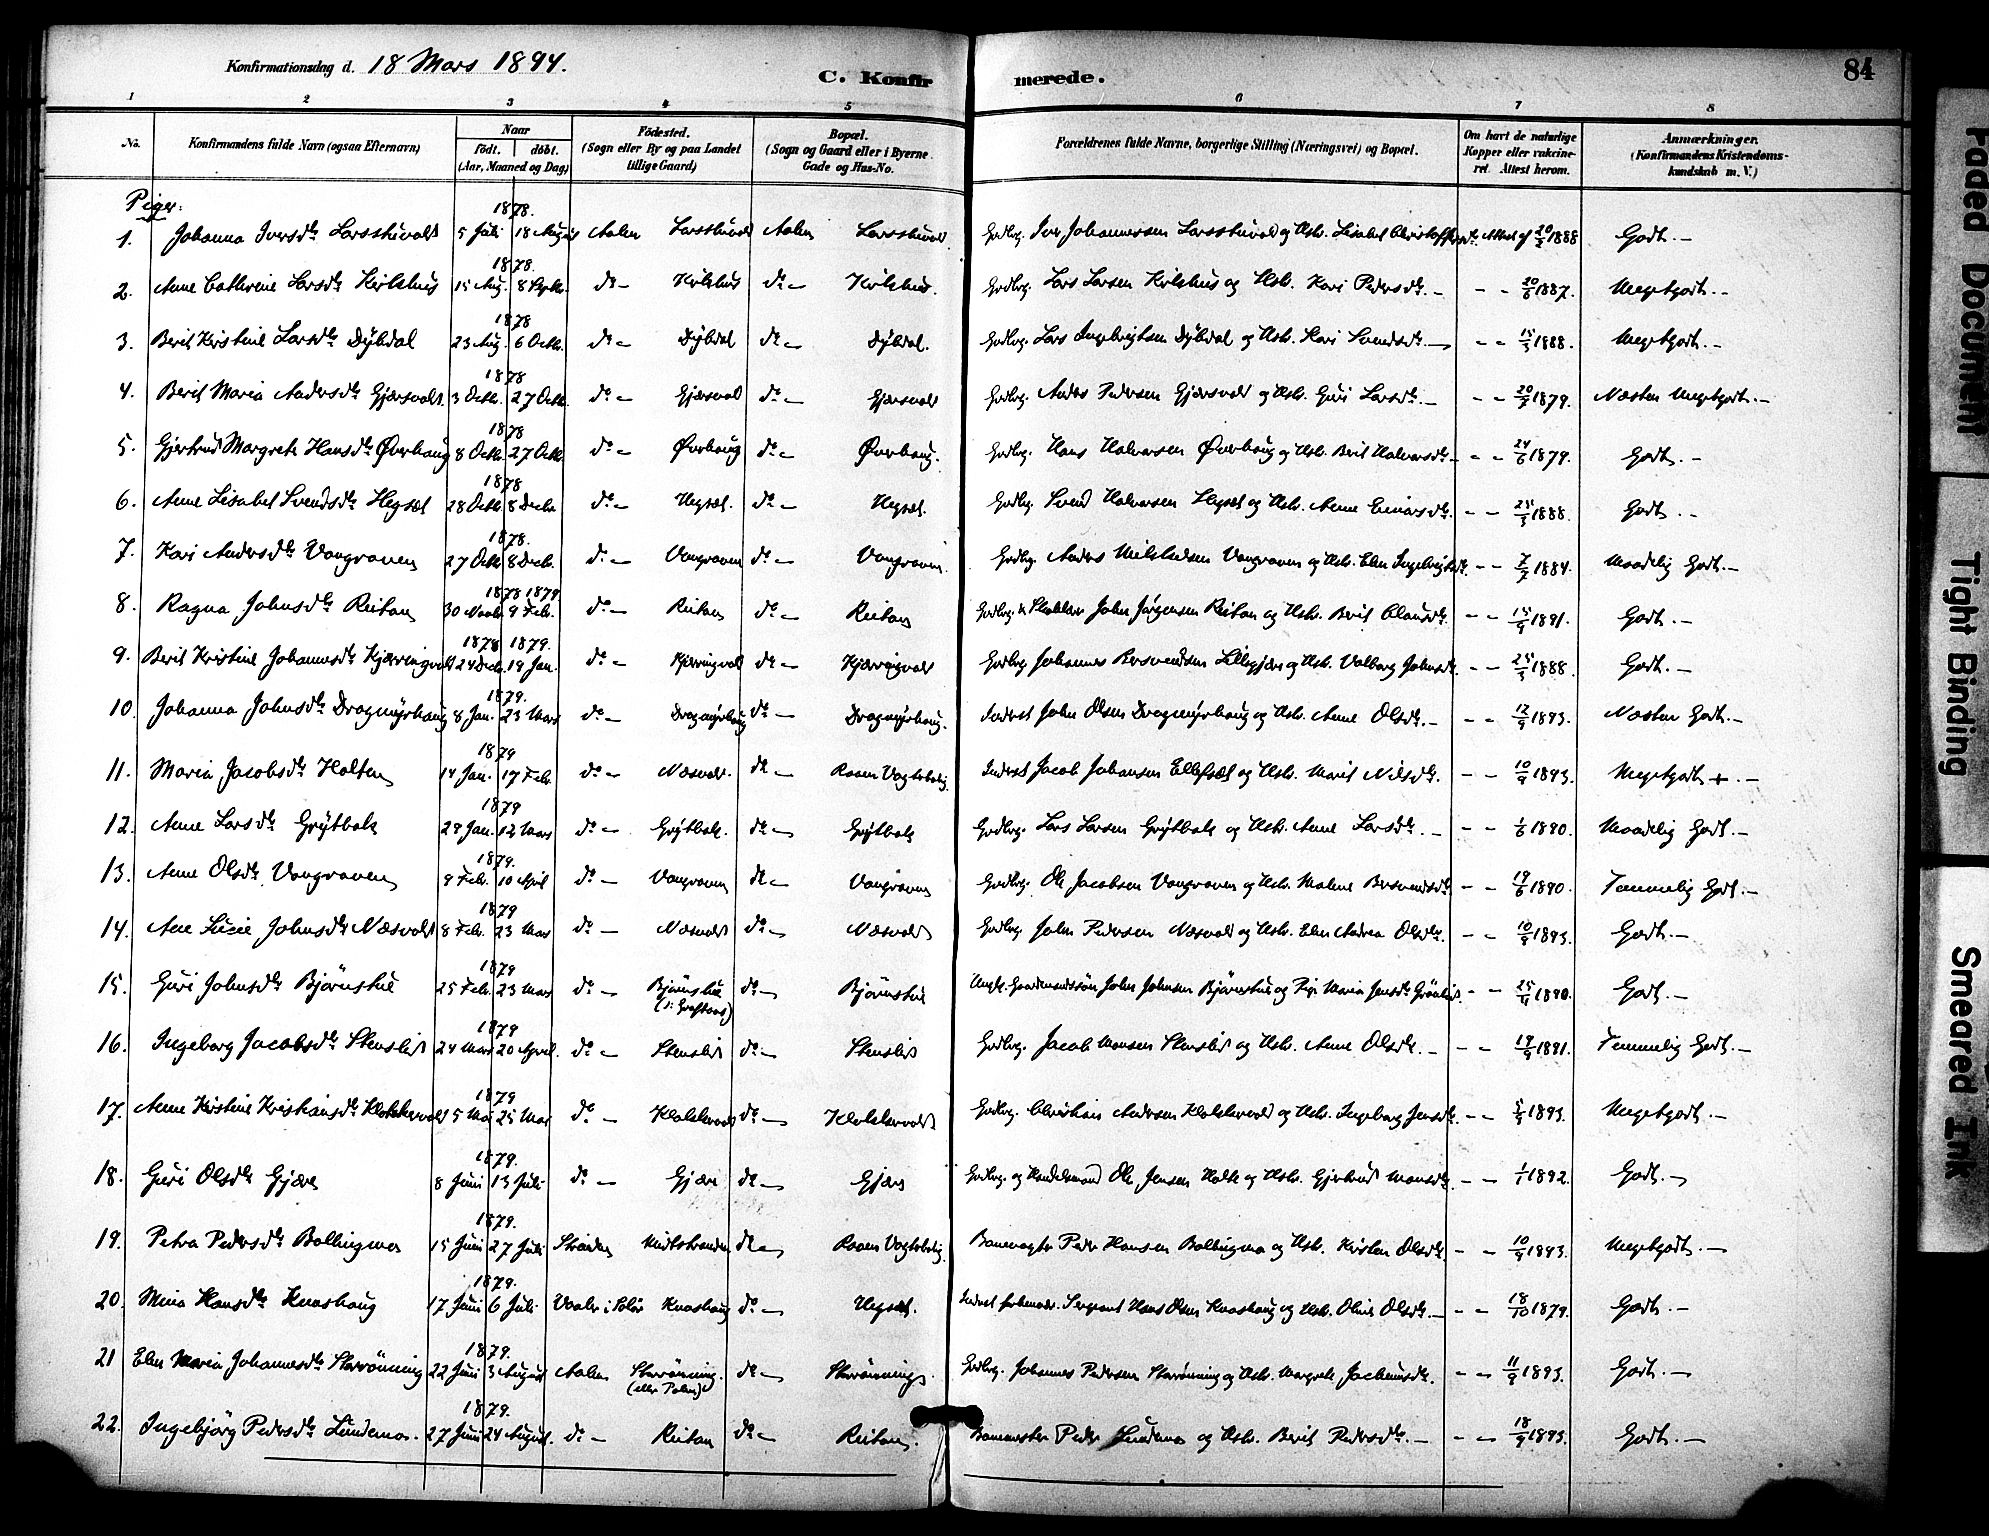 Konfirmationsdag d. 18 Mars 1894.
C. Konfirmerede.
84
1 2 3 4 5 6 7 8
No. Konfirmandens fulde Navn (ogsaa Efternavn) Naar født. døbt. (Aar, Maaned og Dag) Fødested. (Sogn eller By og paa Landet tillige Gaard) Bopæl. (Sogn og Gaard eller i Byerne Gade og Hus-No. Forældrenes fulde Navne, borgerlige Stilling (Næringsvei) og Bopæl. Om havt de naturlige Kopper eller vakcineret. Attest herom. Anmærkninger. (Konfirmandens Kristendomskundskab m. V.)
Piger:
1878.
1. Johanna Iversdtr Larsstuvold 5 Juli 18 August Aalen Larsstuvold Aalen Larsstuvold Grdbrg. Iver Johannessen Larsstuvold og Hstr. Lisabet Attest af 20/5 1888 Godt.—
1878.
2. Anne Cathrine Larsdtr Kirkhus 15 Aug. 8 Septbr. do— Kirkhus do— Kirkhus. Grdbrg. Lars Larsen Kirkhus og Hstr. Kari Pedersdtr.— — — 20/6 1887. Megetgodt.—
1878
3. Berit Kristine Larsdtr Dybdal 23 Aug. 6 Octb. do— Dybdal do— Dybdal. Grdbrg. Lars Ingebrigtsen Dybdal og Hstr. Kari Svendsdtr.— — — 15/5 1888. Megetgodt.—
1878
4. Berit Maria Andersdtr Gjærsvold. 3 Octb. 27 Octb. do— Gjærsvold do— Gjærsvold Grdbrg. Anders Pedersen Gjærsvold og Hstr. Guri Larsdtr.— — — 20/7 1879. Næsten Megetgodt.—
1878
5. Gjertrud Margrete Hansdtr Øverhaug 8 Octb. 27 Octb. do— Øverhaug do— Øverhaug. Grdbrg. Hans Halvorsen Øverhaug og Hstr. Berit Halvorsdtr.— — — 24/6 1879. Godt.—
1878
6. Anne Lisabet Svendsdtr Hegset 28 Octb. 8 Decbr. do— Hegset. do— Hegset. Grdbrg. Svend Halvorsen Hegset og Hstr. Anne Einarsdtr. — — 25/5 1888. Godt.—
1878.
7. Kari Andersdtr Vongraven 27 Octb. 8 Decb. do— Vongraven do— Vongraven. Grdbrg. Anders Vongraven og Hstr. Elen Ingebrigtsdtr. — — 7/7 1884. Maadelig Godt.—
1878 1879
8. Ragna Johnsdtr Reitan 30 Novbr. 9 Feb. do— Reitan do— Reitan Grdbrg. & John Jørgensen Reitan og Hstr. Berit Olausdtr. — — 15/9 1891. Godt.—
1878 1879.
9. Berit Kristine Johannesdtr Kjærringvold 24 Decb. 19 Jan. do— Kjærringvold do— Kjærringvold Grdbrg. Johannes Bersvendsen Lillegjære og Hstr. Valborg Johnsdtr. — — 25/5 1888. Godt.—
1879.
10. Johanna Johnsdtr Dragmyrhaug 8 Jan. 23 Mars do— Dragmyrhaug do— Dragmyrhaug. Inderst John Olsen Dragmyrhaug og Hstr. Anne Olsdtr.— — — 12/9 1893. Næsten Godt.—
1879
11. Maria Jacobsdtr Holten 14 Jan. 17 Feb. do— Næsvold. do— Raaen Vogterbolig. Inderst Jacob Johansen Ellefset og Hstr. Marit Nilsdtr. — — 10/9 1893. Megetgodt +.—
1879
12. Anne Larsdtr Grytbak 29 Jan. 12 Mars do— Grytbak. do— Grytbak Grdbrg. Lars Larsen Grytbak og Hstr. Anne Larsdtr.— — — 1/6 1890. Maadelig Godt.—
1879.
13. Anne Olsdtr Vongraven 9 Feb. 10 April do— Vongraven do— Vongraven Grdbrg. Ole Jacobsen Vongraven og Hstr. Malene Bersvendsdtr — — 19/6 1890. Temmelig Godt.—
1879
14. Ane Lucie Johnsdtr Næsvold 8 Feb. 23 Mars do— Næsvold do— Næsvold Grdbrg. John Pedersen Næsvold og Hstr. Elen Andrea Olsdtr. — — 10/9 1893. Godt.—
1879
15. Guri Johnsdtr Bjørnstue 25 Feb. 23 Mars do— Bjørnstue do— Bjørnstue Ungk. Gaardmandssøn John Johnsen Bjørnstue og Pige Maria Jensdtr — — 25/4 1890. Godt.—
1879
16. Ingeborg Jacobsdtr Stenslid 24 Mars 20 April. do— Stenslid do— Stenslid Grdbrg. Jacob Monsen Stenslid og Hstr. Anne Olsdtr.— — — 19/9 1891. Temmelig Godt.—
1879
17. Anne Kirstine Kristiansdtr Klokkervold 5 Mai 25 Mai do— Klokkervold do— Klokkervold Grdbrg. Christian Andersen Klokkervold og Hstr. Ingeborg Jensdtr. — — 5/9 1893. Megetgodt.—
1879.
18. Guri Olsdtr Gjære 8 Juni 13 Juli do— Gjære do— Gjære Grdbrg. og Handelsmand Ole Jensen Holte og Hstr. Gjertrud Monsdtr. — — 1/1 1892. Godt.—
1879.
19. Petra Pedersdtr Bollingmo 15 Juni 27 Juli Strinden do— Raaen Vogterbolig. Banevogter Peder Hansen Bollingmo og Hstr. Kirsten Olsdtr. — — 10/9 1893. Megetgodt.—
1879.
20. Mina Hansdtr Knashaug 17 Juni 6 Juli Vaaler i Solør Knashaug do— Hegset. Sergeant Hans Olsen Knashaug og Hstr. Oline Olsdtr.— — — 18/10 1879. Godt.—
1879.
21 Elen Maria Johannesdtr Starrønning 22 Juni 3 August Aalen Starrønning. do— Starrønning. Grdbrg. Johannes Pedersen Starrønning og Hstr. Margrete Jochumsdtr. — — 11/9 1893. Godt.—
1879.
22. Ingebjørg Pedersdtr Lundemo. 27 Juni 24 August. do— Reitan do— Reitan. Banemester Peder Lundemo og Hstr. Berit Pedersdtr.— — — 18/9 1893. Godt.—
Faded Document
Tight Binding
Smeared Ink